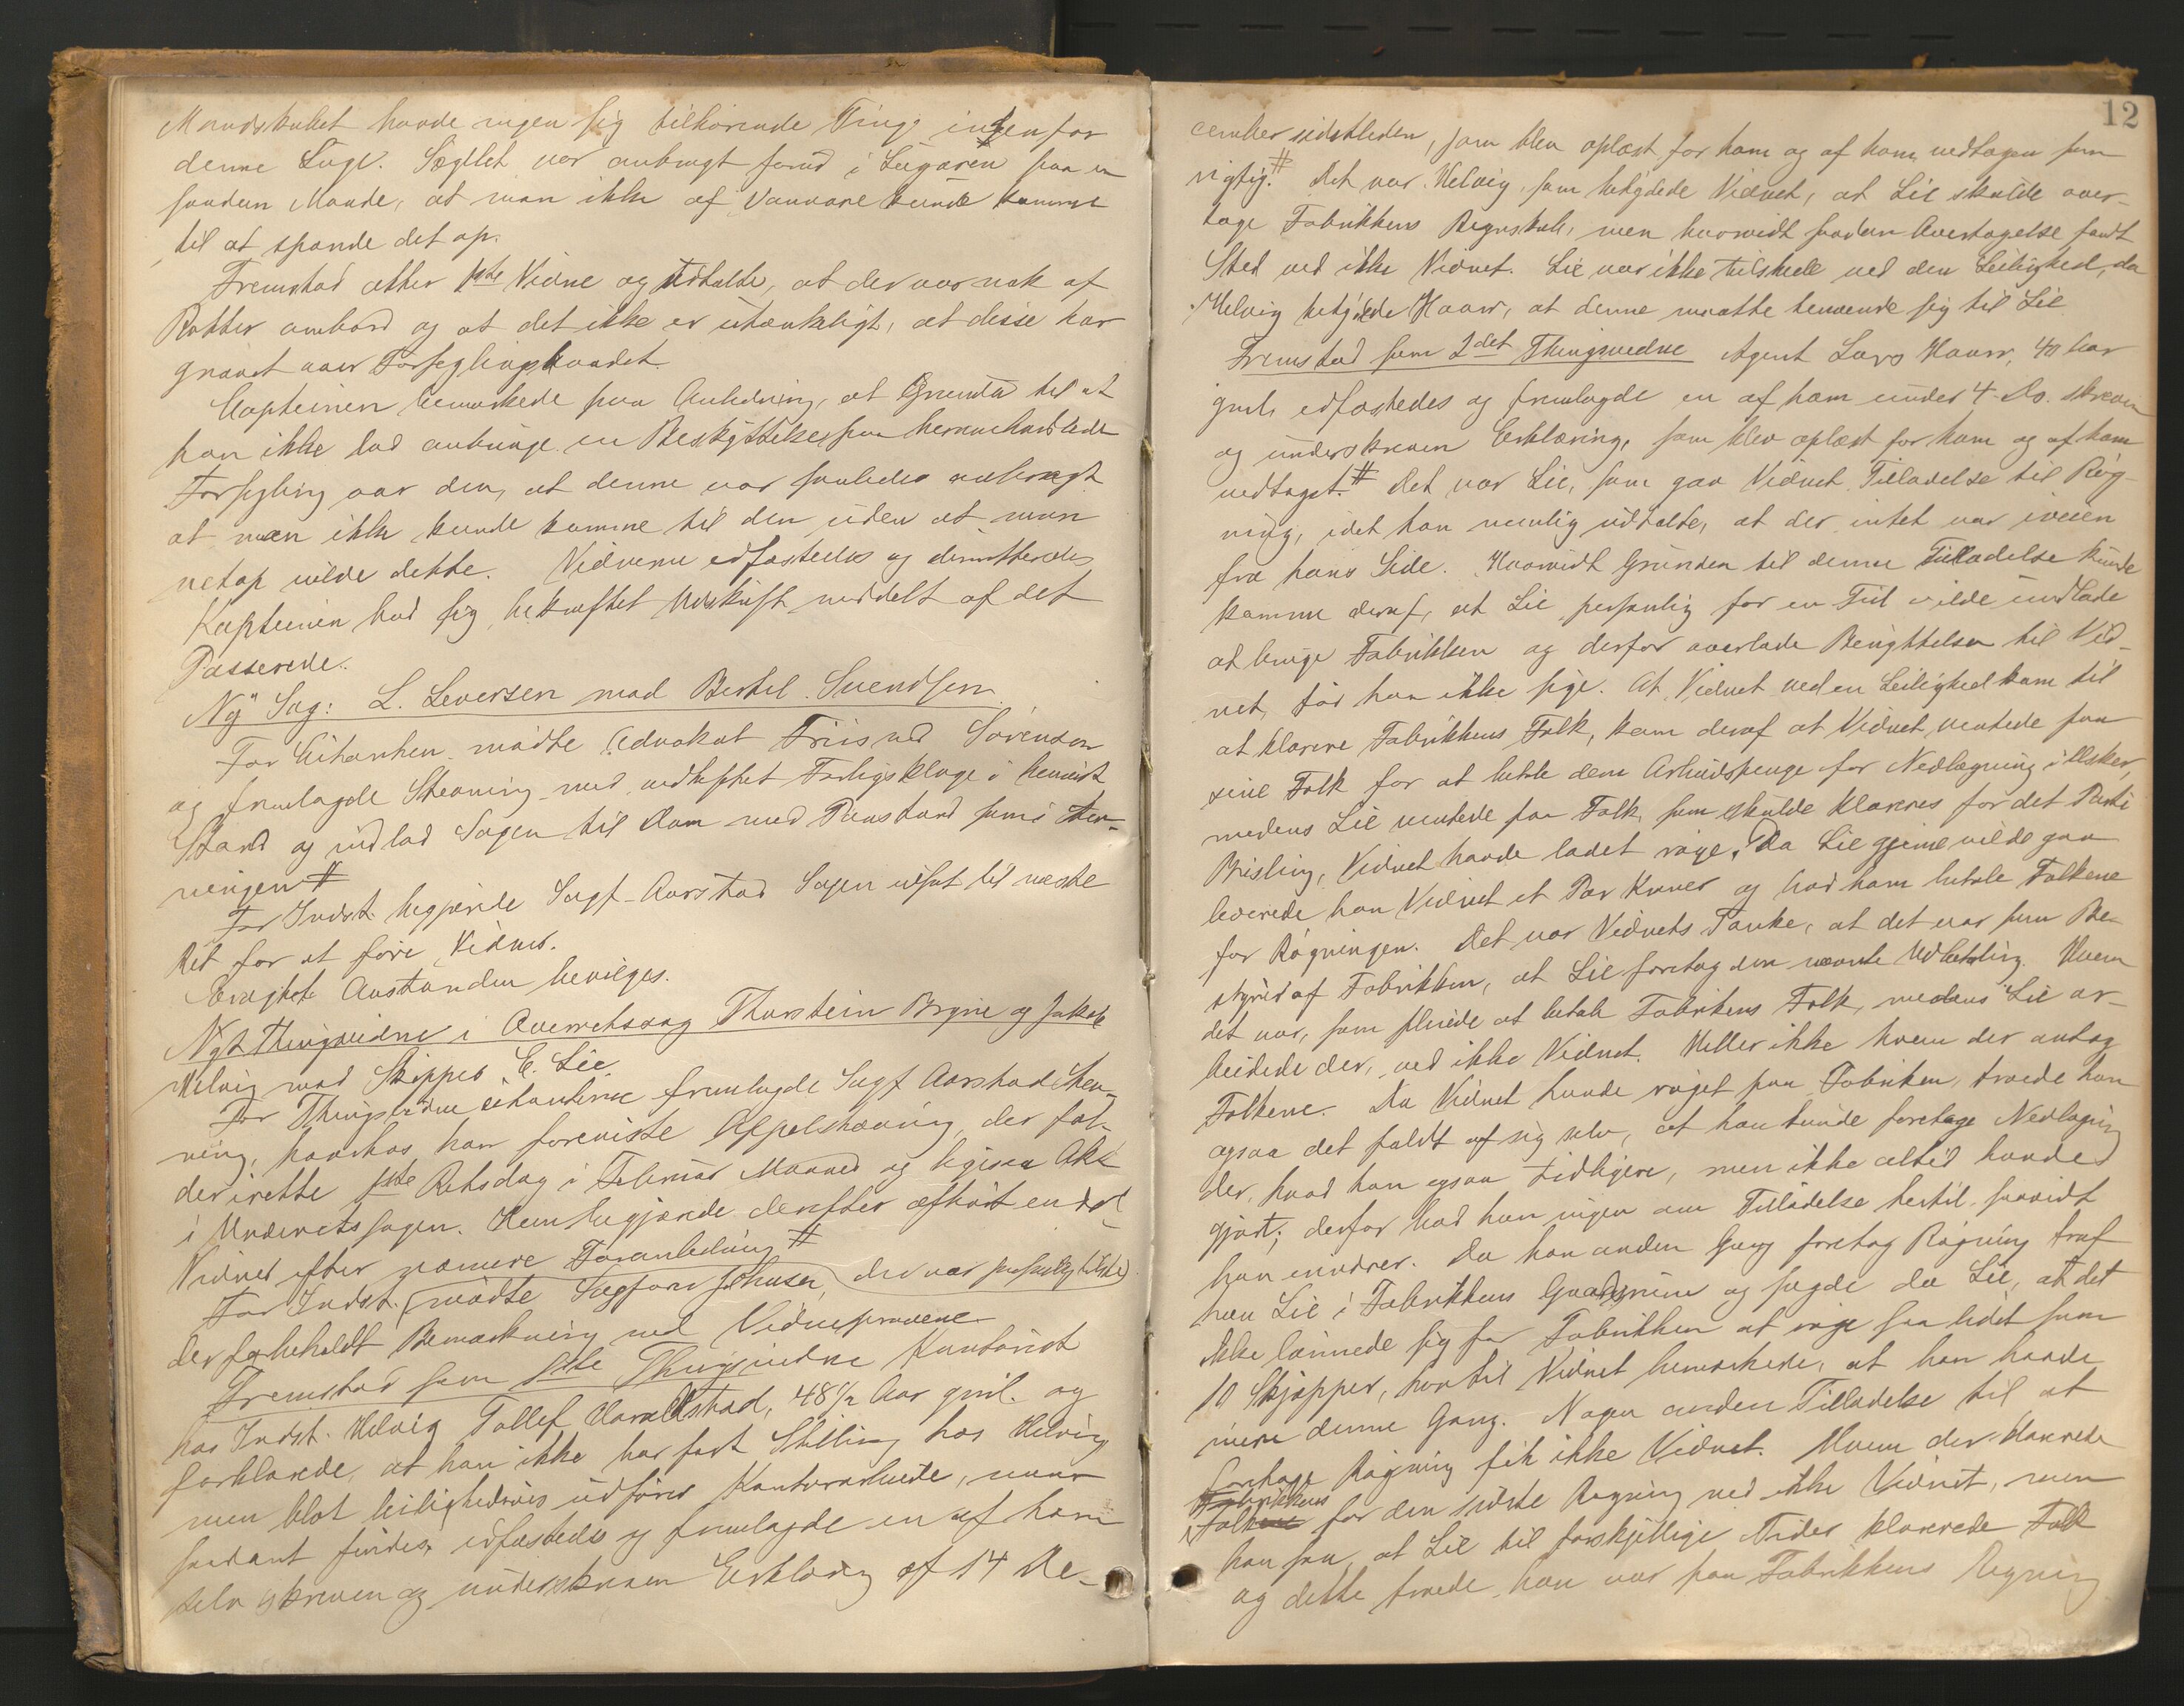 Mandskabet havde ingen sig tilhørende Ting indenfor
denne Luge. Seglet var anbragt forud i Lugaren paa en
saadan Maade, at man ikke af Vanvare kunde komme
til at spænde det op.
Fremstod atter 1ste Vidne og udtalte, at der var nok af
Rotter ombord og at det ikke er utænkeligt, at disse har
gnavet over Forseglingsbaandet.
Kapteinen bemærkede paa Anledning, at Grunden til at
han ikke lod anbringe en Beskyttelse paa heromhandlede
Forsegling var den, at denne var saaledes anbragt
at man ikke kunde komme til den uden at man
netop vilde dette. Vidnerne edfæstedes og dimitteredes
Kapteinen bad sig bekræftet Udskrift meddelt af det
Passerede.
Ny Sag: L. Leversen mod Bertel Svendsen
For Citanten mødte Advokat Friis ved Sørensen
og fremlagde Stevning med vedheftet Forligsklage i henvist
Stand og indlod Sagen til Dom med Paastand som i Stev-
ningen #
For Indst. begjærede Sagf. Aarstad Sagen udsat til næste
Ret for at føre Vidner.
Eragtet Anstanden bevilges.
Nyt Thingsvidne i Overretssag Thorstein Bryne og Jakob
Helvig mod Skipper E. Lie.
For Thingsvidne citanterne fremlagde Sagf Aarstad Stev-
ning, hvorhos han foreviste Appelstævning, der fal-
der irette 1ste Retsdag i Februar Maaned og ligesaa Akt
i Underretssagen. Hem begjærede derefter afhørt en Del
Vidner efter nærmere Foranledning #
For Indst. mødte Sagfører Johnsen, der var personlig tilstede
der forbeholdt Bemærkning ved Vidneprovene
Fremstod som 1ste Thingsvidne Kontorist
hos Indst. Helvig Tollef Haraldstad, 48 1/2 Aar gml. og
forklarede, at han ikke har fast Stilling hos Helvig
men blot leilighedsvis udfører Kontorarbeide, naar
saadant findes, edfæstedes og fremlagde en af ham
selv skreven og underskreven Erklæring af 14 De-
12
cember sidstleden, som blev oplæst for ham og af ham vedtagen som
rigtig. # Det var Helvig, som betydede Vidnet, at Lie skulde over-
tage Fabrikkens Regnskab, men hvorvidt saadan Overtagelse fandt
Sted ved ikke Vidnet. Lie var ikke tilstede ved den Leilighed, da
Helvig betydede Haarr, at denne maatte henvende sig til Lie
Fremstod som 2det Thingsvidne Agent Lars Haarr, 40 Aar
gml, edfæstedes og fremlagde en af ham under 4. Ds. skreven
og underskreven Erklæring, som blev oplæst for ham og af ham
vedtaget. # Det var Lie, som gav Vidnet Tilladelse til Røg-
ning, idet han nemlig udtalte, at der intet var iveien
fra hans Side. Hvorvidt Grunden til denne Tilladelse kunde
komme deraf, at Lie personlig for en Tid vilde undlade
at bruge Fabrikken og derfor overlade Benyttelsen til Vid-
net, tør han ikke sige. At Vidnet ved en Leilighed kom til
at klarere Fabrikkens Folk, kom deraf at Vidnet ventede paa
sine Folk for at betale dem Arbeidspenge for Nedlægning i Æsker,
medens Lie ventede paa Folk, som skulde klareres for det Parti
Brisling, Vidnet havde ladet røge. Da Lie gjerne vilde gaa
leverede han Vidnet et Par Kroner og bad ham betale Folkene
for Røgningen. Det var Vidnets Tanke, at det var som Be-
styrer af Fabrikken, at Lie foretog den nævnte Udbetaling. Hvem
det var, som pleiede at betale Fabrikens Folk, medens Lie ar-
beidede der, ved ikke Vidnet. Heller ikke hvem der antog
Folkene. Da Vidnet havde røget paa Fabriken, troede han
ogsaa det faldt af sig selv, at han kunde foretage Nedlægning
der, hvad han ogsaa tidligere, men ikke altid havde
gjort; derfor bad han ingen om Tilladelse hertil saavidt
han erindrer. Da han anden Gang foretog Røgning traf
han Lie i Fabrikkens Gaardsrum og sagde da Lie, at det
ikke lønnede sig for Fabrikken at røge saa lidet som
10 Skjæpper, hvortil Vidnet bemærkede, at han havde
mere denne Gang. Nogen anden Tilladelse til at
foretage Røgning fik ikke Vidnet. Hvem der klarerede
Fabrikkens
Folkene for den sidste Røgning ved ikke Vidnet, men
han saa, at Lie til forskjellige Tider klarerede Folk
og dette troede han var paa Fabrikkens Regning